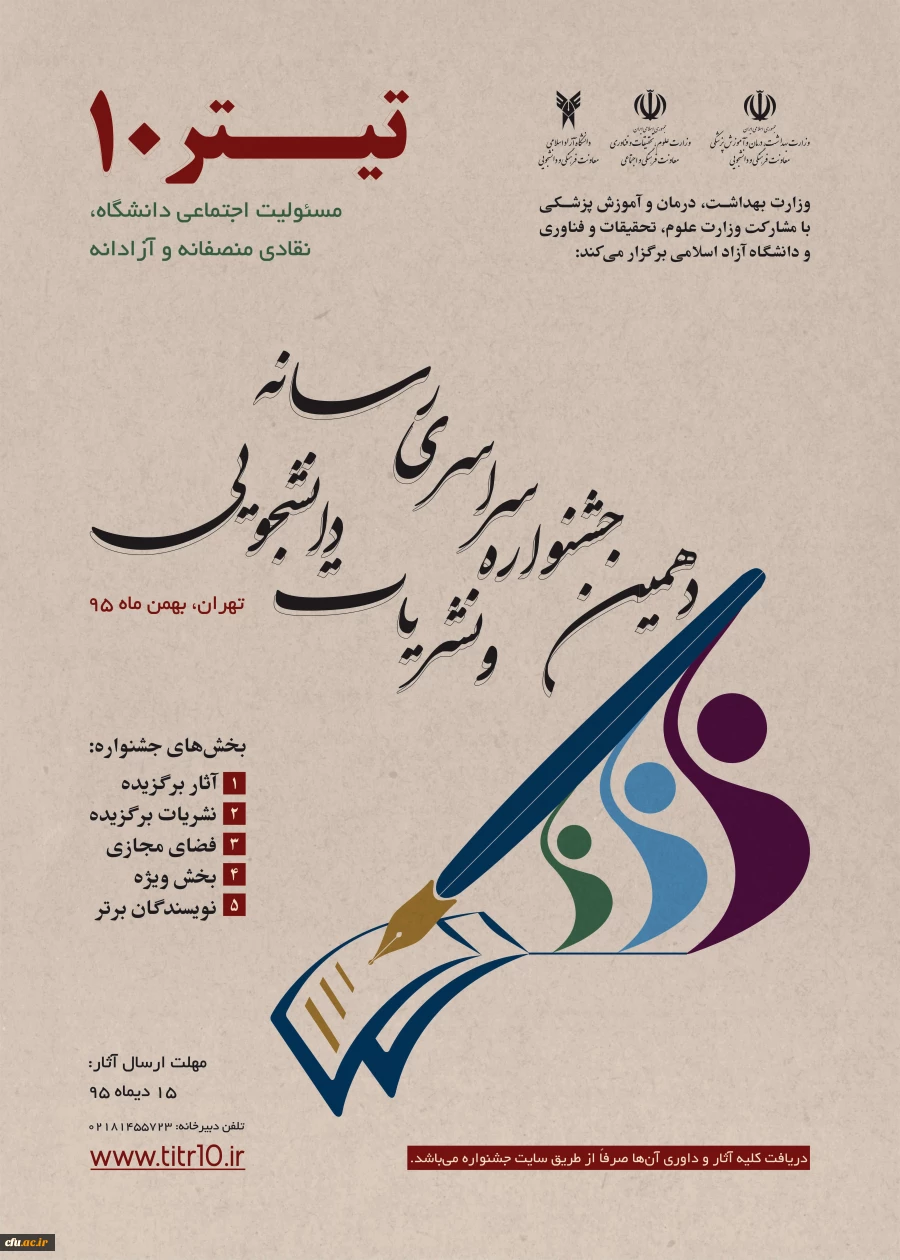 تیتر ۱۰
مسئولیت اجتماعی دانشگاه،
نقادی منصفانه و آزادانه
جمهوری اسلامی ایران
وزارت بهداشت، درمان و آموزش پزشکی
معاونت فرهنگی و دانشجویی
جمهوری اسلامی ایران
وزارت علوم، تحقیقات و فناوری
معاونت فرهنگی و اجتماعی
دانشگاه آزاد اسلامی
معاونت فرهنگی و دانشجویی
وزارت بهداشت، درمان و آموزش پزشکی
با مشارکت وزارت علوم، تحقیقات و فناوری
و دانشگاه آزاد اسلامی برگزار می‌کند:
دهمین جشنواره سراسری رسانه
و نشریات دانشجویی
تهران، بهمن ماه ۹۵
بخش‌های جشنواره:
۱ آثار برگزیده
۲ نشریات برگزیده
۳ فضای مجازی
۴ بخش ویژه
۵ نویسندگان برتر
مهلت ارسال آثار:
۱۵ دیماه ۹۵
تلفن دبیرخانه: ۰۲۱۸۱۴۵۵۷۲۳
www.titr10.ir
دریافت کلیه آثار و داوری آن‌ها صرفاً از طریق سایت جشنواره می‌باشد.
cfu.ac.ir